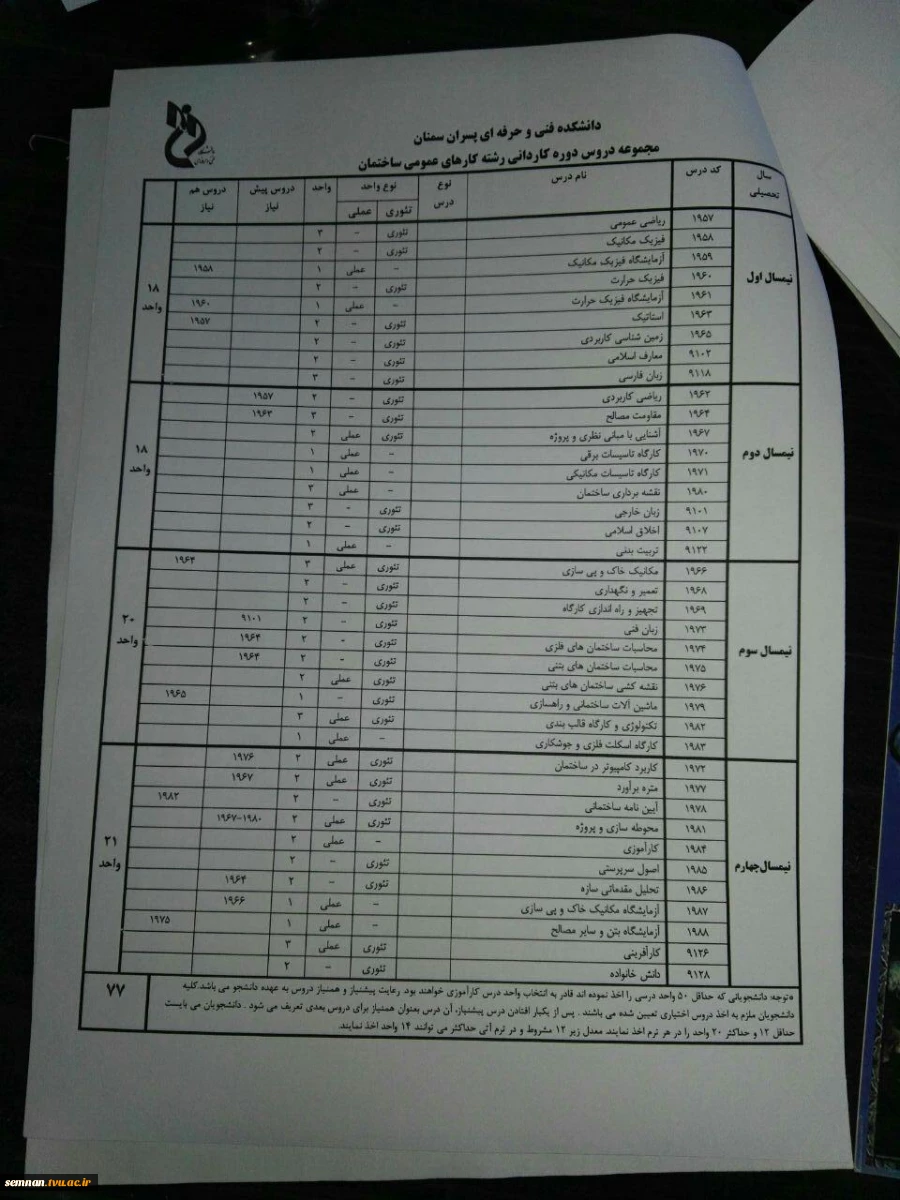 دانشکده فنی و حرفه ای پسران سمنان
مجموعه دروس دوره کاردانی رشته کارهای عمومی ساختمان
سال تحصیلی کد درس نام درس نوع درس نوع واحد تئوری عملی واحد دروس پیش نیاز دروس هم نیاز
نیمسال اول ۱۸ واحد
۱۹۵۷ ریاضی عمومی تئوری - ۳
۱۹۵۸ فیزیک مکانیک تئوری - ۲
۱۹۵۹ آزمایشگاه فیزیک مکانیک - عملی ۱ ۱۹۵۸
۱۹۶۰ فیزیک حرارت تئوری - ۲
۱۹۶۱ آزمایشگاه فیزیک حرارت - عملی ۱ ۱۹۶۰
۱۹۶۳ استاتیک تئوری - ۲ ۱۹۵۷
۱۹۶۵ زمین شناسی کاربردی تئوری - ۲
۹۱۰۲ معارف اسلامی تئوری - ۲
۹۱۱۸ زبان فارسی تئوری - ۳
نیمسال دوم ۱۸ واحد
۱۹۶۲ ریاضی کاربردی تئوری - ۲ ۱۹۵۷
۱۹۶۴ مقاومت مصالح تئوری - ۳ ۱۹۶۳
۱۹۶۷ آشنایی با مبانی نظری و پروژه تئوری عملی ۲
۱۹۷۰ کارگاه تاسیسات برقی - عملی ۱
۱۹۷۱ کارگاه تاسیسات مکانیکی - عملی ۱
۱۹۸۰ نقشه برداری ساختمان - عملی ۳
۹۱۰۱ زبان خارجی تئوری - ۳
۹۱۰۷ اخلاق اسلامی تئوری - ۲
۹۱۲۲ تربیت بدنی - عملی ۱
نیمسال سوم ۲۰ واحد
۱۹۶۶ مکانیک خاک و پی سازی تئوری عملی ۳ ۱۹۶۴
۱۹۶۸ تعمیر و نگهداری تئوری - ۲
۱۹۶۹ تجهیز و راه اندازی کارگاه تئوری - ۲
۱۹۷۳ زبان فنی تئوری - ۲ ۹۱۰۱
۱۹۷۴ محاسبات ساختمان های فلزی تئوری - ۲ ۱۹۶۴
۱۹۷۵ محاسبات ساختمان های بتنی تئوری - ۲ ۱۹۶۴
۱۹۷۶ نقشه کشی ساختمان های بتنی تئوری عملی ۲
۱۹۷۹ ماشین آلات ساختمانی و راهسازی تئوری - ۱ ۱۹۶۵
۱۹۸۲ تکنولوژی و کارگاه قالب بندی تئوری عملی ۳
۱۹۸۳ کارگاه اسکلت فلزی و جوشکاری - عملی ۱
نیمسال چهارم ۲۱ واحد
۱۹۷۲ کاربرد کامپیوتر در ساختمان تئوری عملی ۲ ۱۹۷۶
۱۹۷۷ متره برآورد تئوری عملی ۲ ۱۹۶۷
۱۹۷۸ آیین نامه ساختمانی تئوری - ۲ ۱۹۸۲
۱۹۸۱ محوطه سازی و پروژه تئوری عملی ۲ ۱۹۶۷-۱۹۸۰
۱۹۸۴ کارآموزی - عملی ۲
۱۹۸۵ اصول سرپرستی تئوری - ۲
۱۹۸۶ تحلیل مقدماتی سازه تئوری - ۲ ۱۹۶۴
۱۹۸۷ آزمایشگاه مکانیک خاک و پی سازی - عملی ۱ ۱۹۶۶
۱۹۸۸ آزمایشگاه بتن و سایر مصالح - عملی ۱ ۱۹۷۵
۹۱۲۶ کارآفرینی تئوری عملی ۳
۹۱۲۸ دانش خانواده تئوری - ۲
*توجه: دانشجویانی که حداقل ۵۰ واحد درسی را اخذ نموده اند قادر به انتخاب واحد درس کارآموزی خواهند بود. رعایت پیشنیاز و همنیاز دروس به عهده دانشجو می باشد.کلیه
دانشجویان ملزم به اخذ دروس اختیاری تعیین شده می باشند . پس از یکبار افتادن درس پیشنیاز، آن درس بعنوان همنیاز برای دروس بعدی تعریف می شود . دانشجویان می بایست
حداقل ۱۲ و حداکثر ۲۰ واحد را در هر ترم اخذ نمایند. معدل زیر ۱۲ مشروط و در ترم آتی حداکثر می توانند ۱۴ واحد اخذ نمایند.
۷۷
semnan.tvu.ac.ir